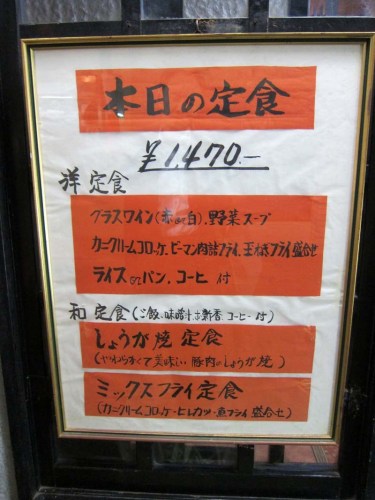 本日の定食
¥1,470.-
洋定食
グラスワイン(赤or白)、野菜スープ
カニクリームコロッケ、ピーマン肉詰フライ、玉ねぎフライ盛合せ
ライスorパン、コーヒー付
和定食(ご飯、味噌汁、お新香、コーヒー付)
しょうが焼定食
(やわらかくて美味しい豚肉のしょうが焼)
ミックスフライ定食
(カニクリームコロッケ・ヒレカツ・魚フライ盛合せ)